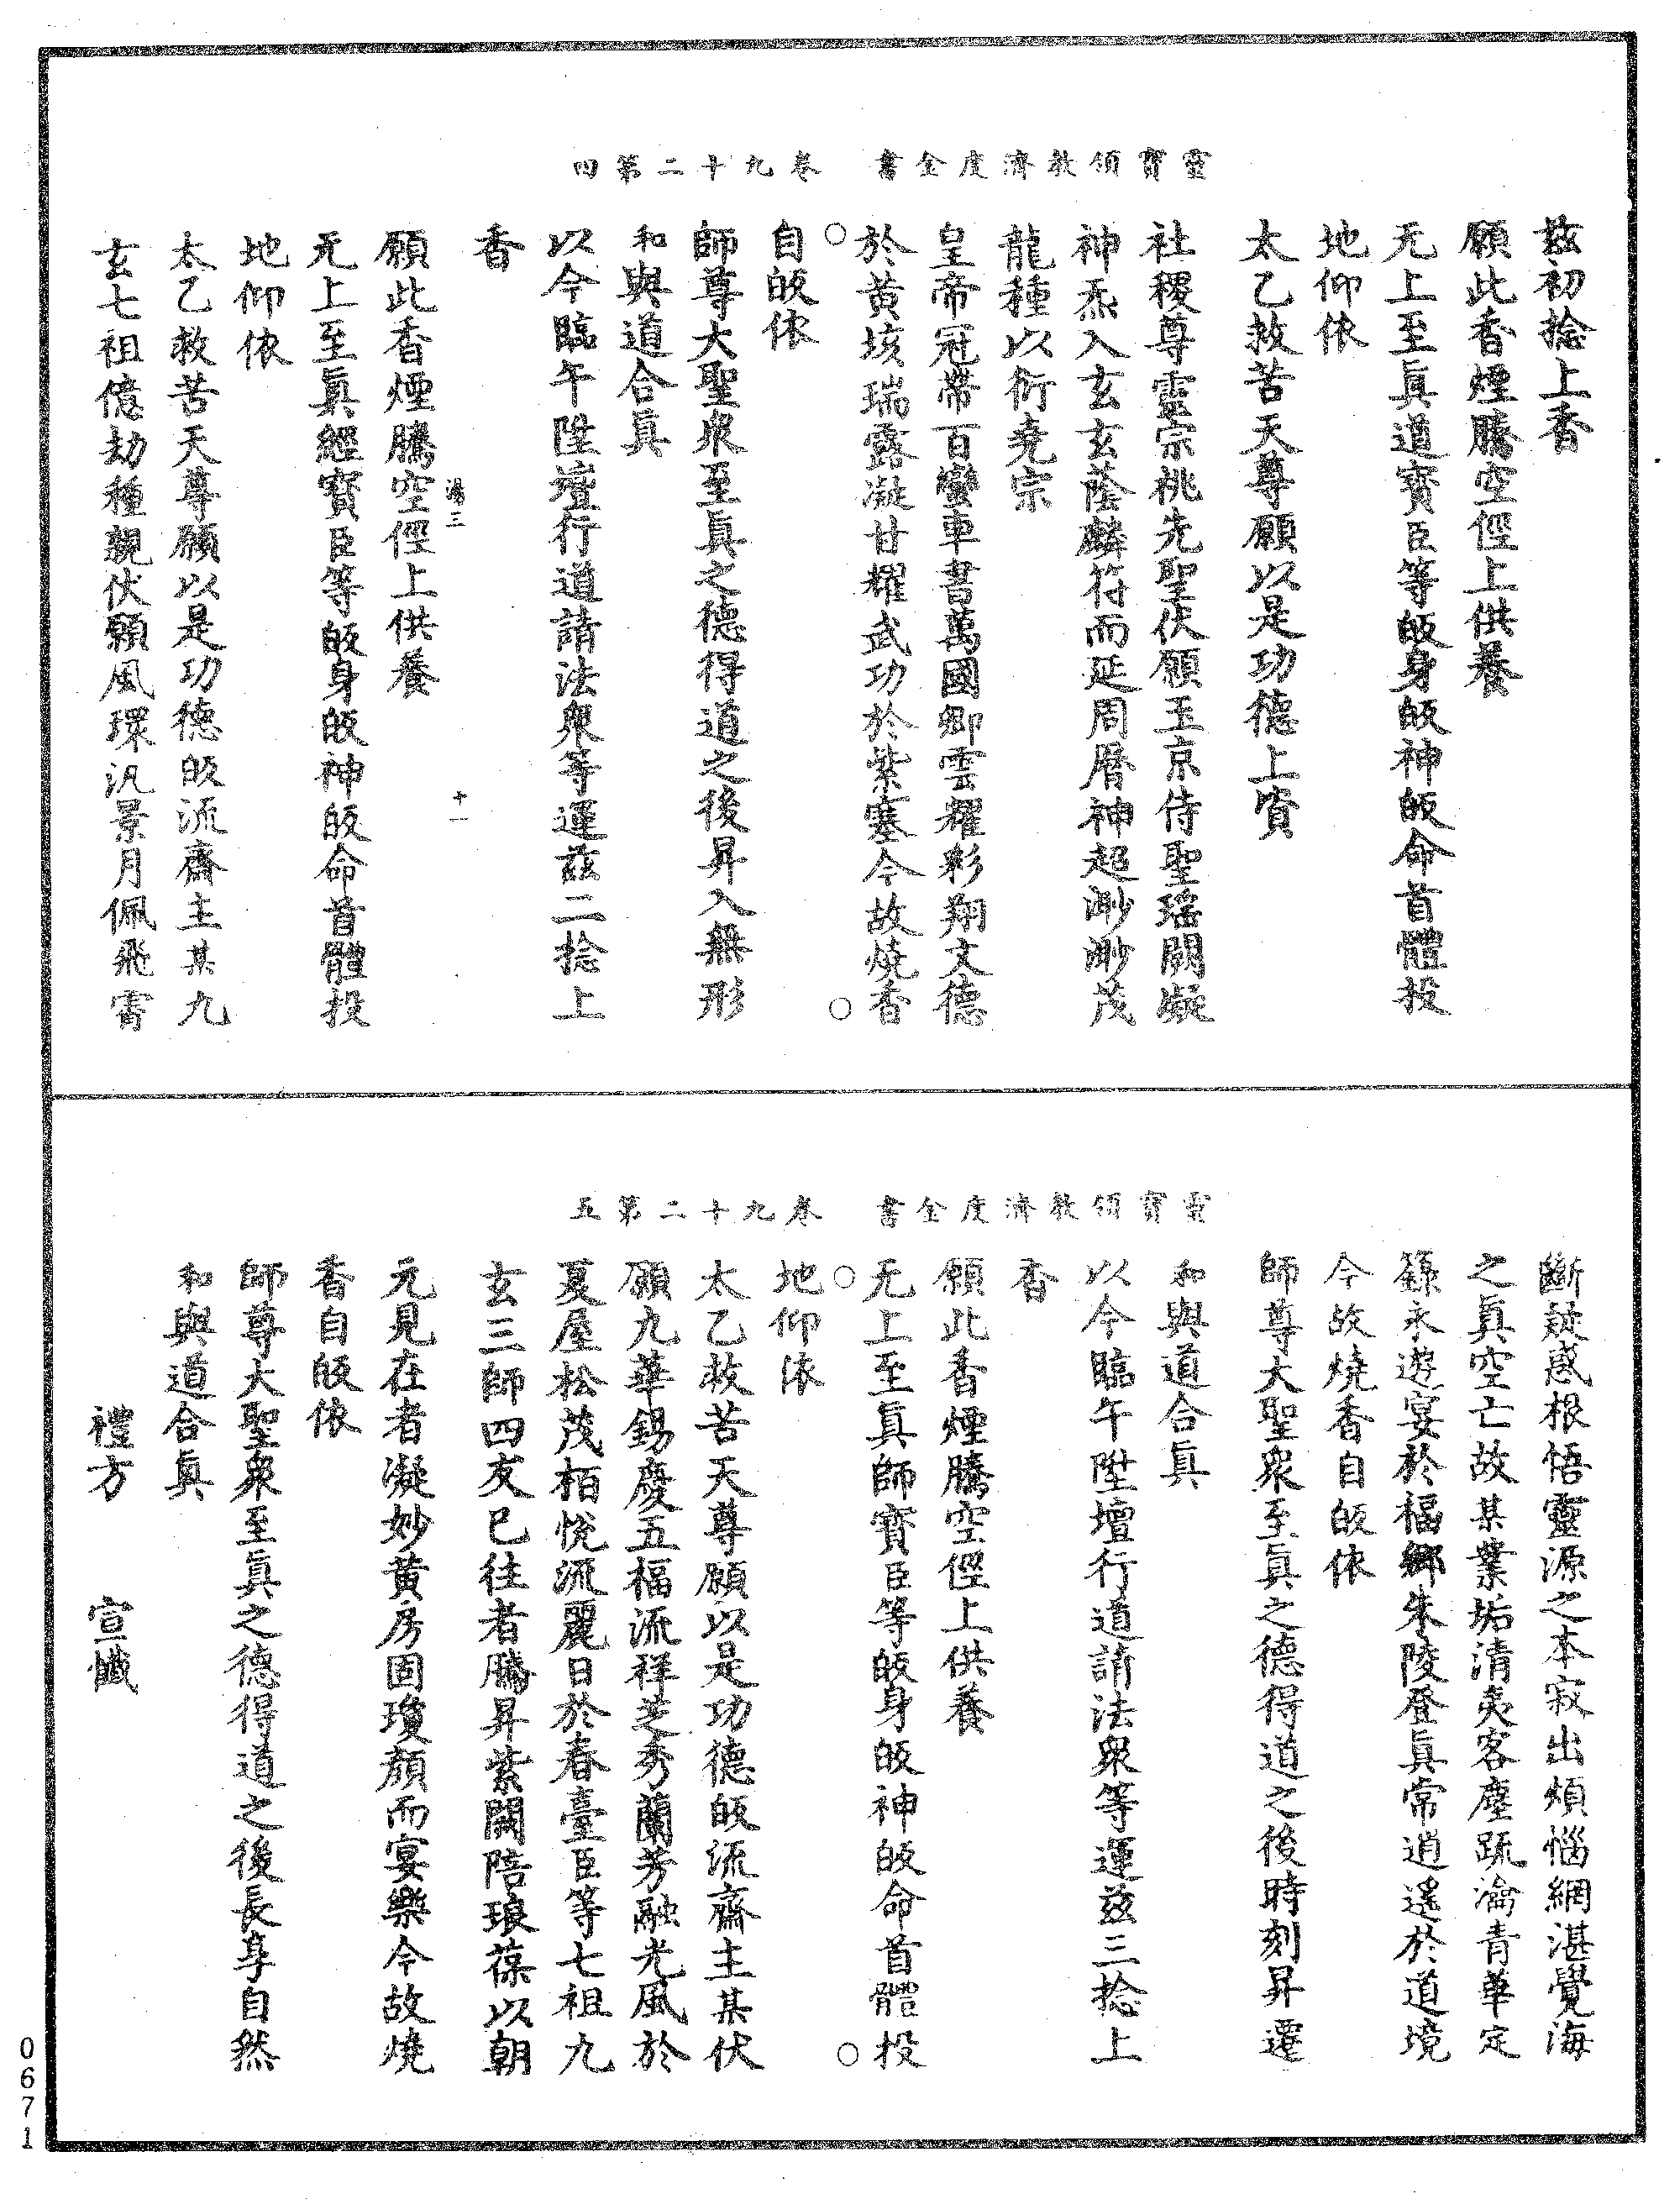 靈寶領教濟度金書　卷九十二第四
茲初捻上香
願此香煙騰空徑上供養
无上至眞道寳臣等皈身皈神皈命首體投
地仰依
太乙救苦天尊願以是功德上資
社稷尊靈宗祧先聖伏願玉京侍聖瑤闕凝
神炁入玄玄蔭麟符而延周曆神超渺渺茂
龍種以衍堯宗
皇帝冠帶百蠻車書萬國卿雲耀彩翔文德
於黃垓瑞露凝甘耀武功於紫塞今故燒香
自皈依
師尊大聖衆至眞之德得道之後昇入無形
和與道合眞
以今臨午陞壇行道請法衆等運茲二捻上
香
湯三　十一
願此香煙騰空徑上供養
无上至眞經寳臣等皈身皈神皈命首體投
地仰依
太乙救苦天尊願以是功德皈流齋主某九
玄七祖億劫種親伏願風環汎景月佩飛霄
靈寶領教濟度金書　卷九十二第五
斷疑惑根悟靈源之本寂出煩惱網湛覺海
之眞空亡故某業垢清夷客塵疏瀹青華定
籙永遊宴於福鄉朱陵登眞常逍遙於道境
今故燒香自皈依
師尊大聖衆至眞之德得道之後時刻昇遷
和與道合眞
以今臨午陞壇行道請法衆等運茲三捻上
香
願此香煙騰空徑上供養
无上至眞師寳臣等皈身皈神皈命首體投
地仰依
太乙救苦天尊願以是功德皈流齋主某伏
願九華錫慶五福流祥芝秀蘭芳融光風於
夏屋松茂柏悅流麗日於春臺臣等七祖九
玄三師四友已往者騰昇紫闕陪琅葆以朝
元見在者凝妙黃房固瓊顏而宴樂今故燒
香自皈依
師尊大聖衆至眞之德得道之後長享自然
和與道合眞
禮方　宣懺
0671